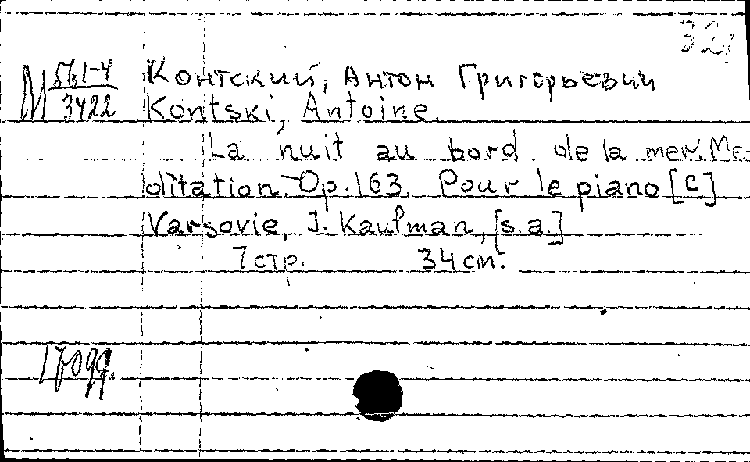 32
М 561-4
3422
Контский, Антон Григорьевич
Kontski, Antoine.
La nuit au bord de la mer. Me-
ditation. Op. 163. Pour le piano [C]
Varsovie, J. Kaufman, [s.a.]
7 стр. 34 см.